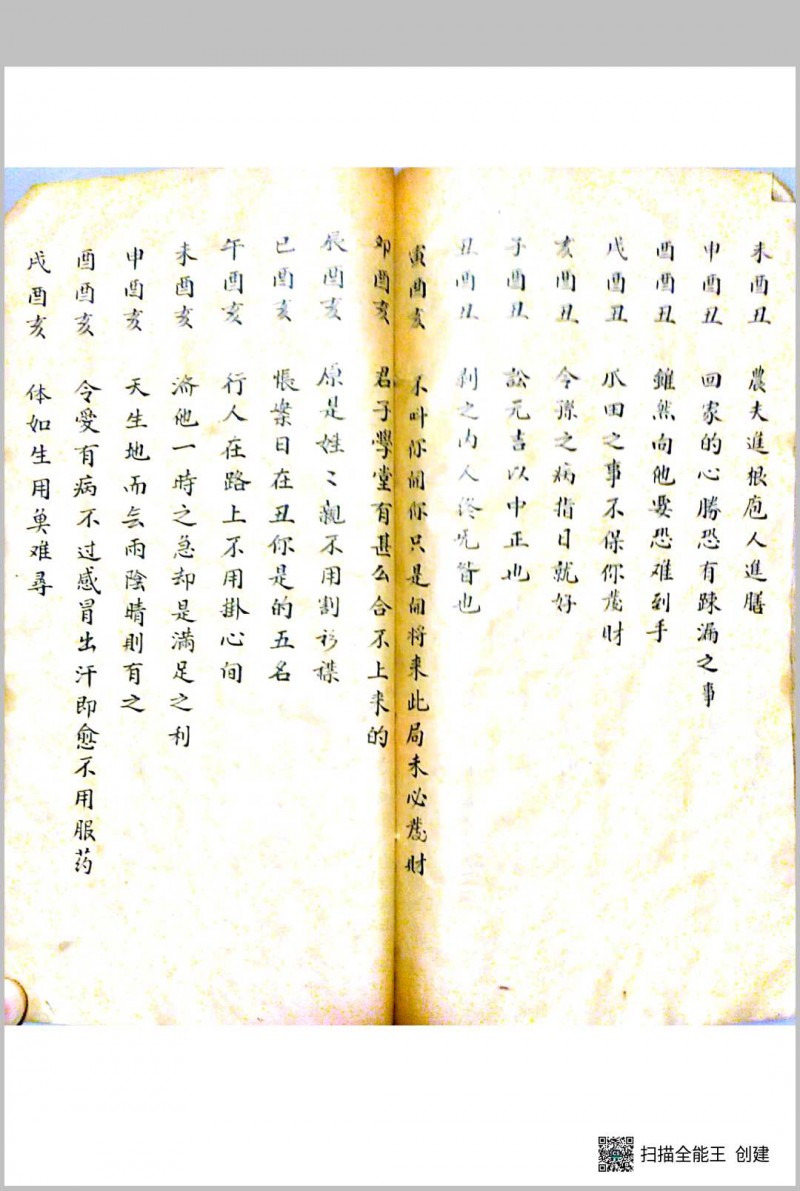 未酉丑 農夫進根庖人進膳
申酉丑 回家的心勝恐有踈漏之事
酉酉丑 錐然向他要恐难到手
戌酉丑 爪田之事不保你發財
亥酉丑 令孫之病指日就好
子酉丑 訟元吉以中正也
丑酉丑 剥之内人終
寅酉亥 不叫你问你只是问将来此局未必發財
卯酉亥 君子學堂有甚么合不上来的
辰酉亥 原是姓〻親不用割衫襟
巳酉亥 帳案日在丑你是的五名
午酉亥 行人在路上不用掛心间
未酉亥 济他一時之急却是滿足之利
申酉亥 天生地而雨陰晴則有之
酉酉亥 令爱有病不过感冒出汗即愈不用服药
戌酉亥 体如生用奠难尋
扫描全能王 创建